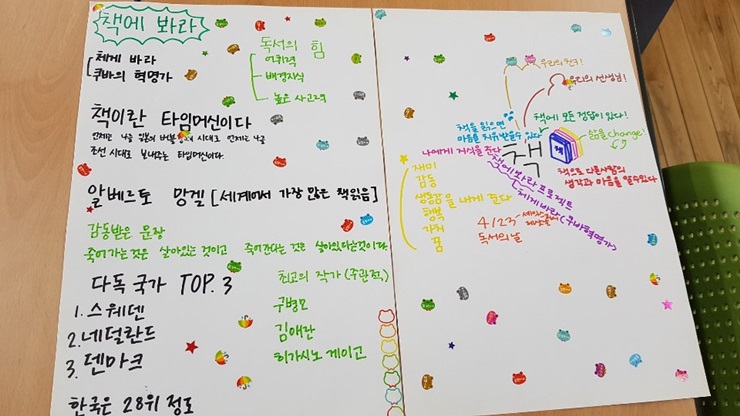 책에 봐라
체게 바라
쿠바의 혁명가
독서의 힘
어휘력
배경지식
높은 사고력
책이란 타임머신이다
언제든 나를 김봉의 버블 시대로 언제든 나를
조선 시대로 보내주는 타임머신이다.
알베르토 망겔 [세계에서 가장 많은 책읽음]
감동받은 문장
죽어가는 것은 살아있는 것이고 죽어간다는 것은 살아있다는것이다
다독 국가 TOP.3
1. 스웨덴
2. 네덜란드
3. 덴마크
한국은 28위 정도
최고의 작가(주관적)
구병모
김애란
히가시노 게이고
우리의 친구!
우리의 선생님!
책을 읽으면
마음을 치유받을수 있다
책에 모든 정답이 있다!
나에게 지식을 준다
책
책
삶을 change!
책으로 다른사람의
생각과 마음을 알수있다
재미
감동
생동감을 나에게 준다
행복
가치
꿈
책에봐라 프로젝트
체게바라(쿠바혁명가)
4/23
독서의 날